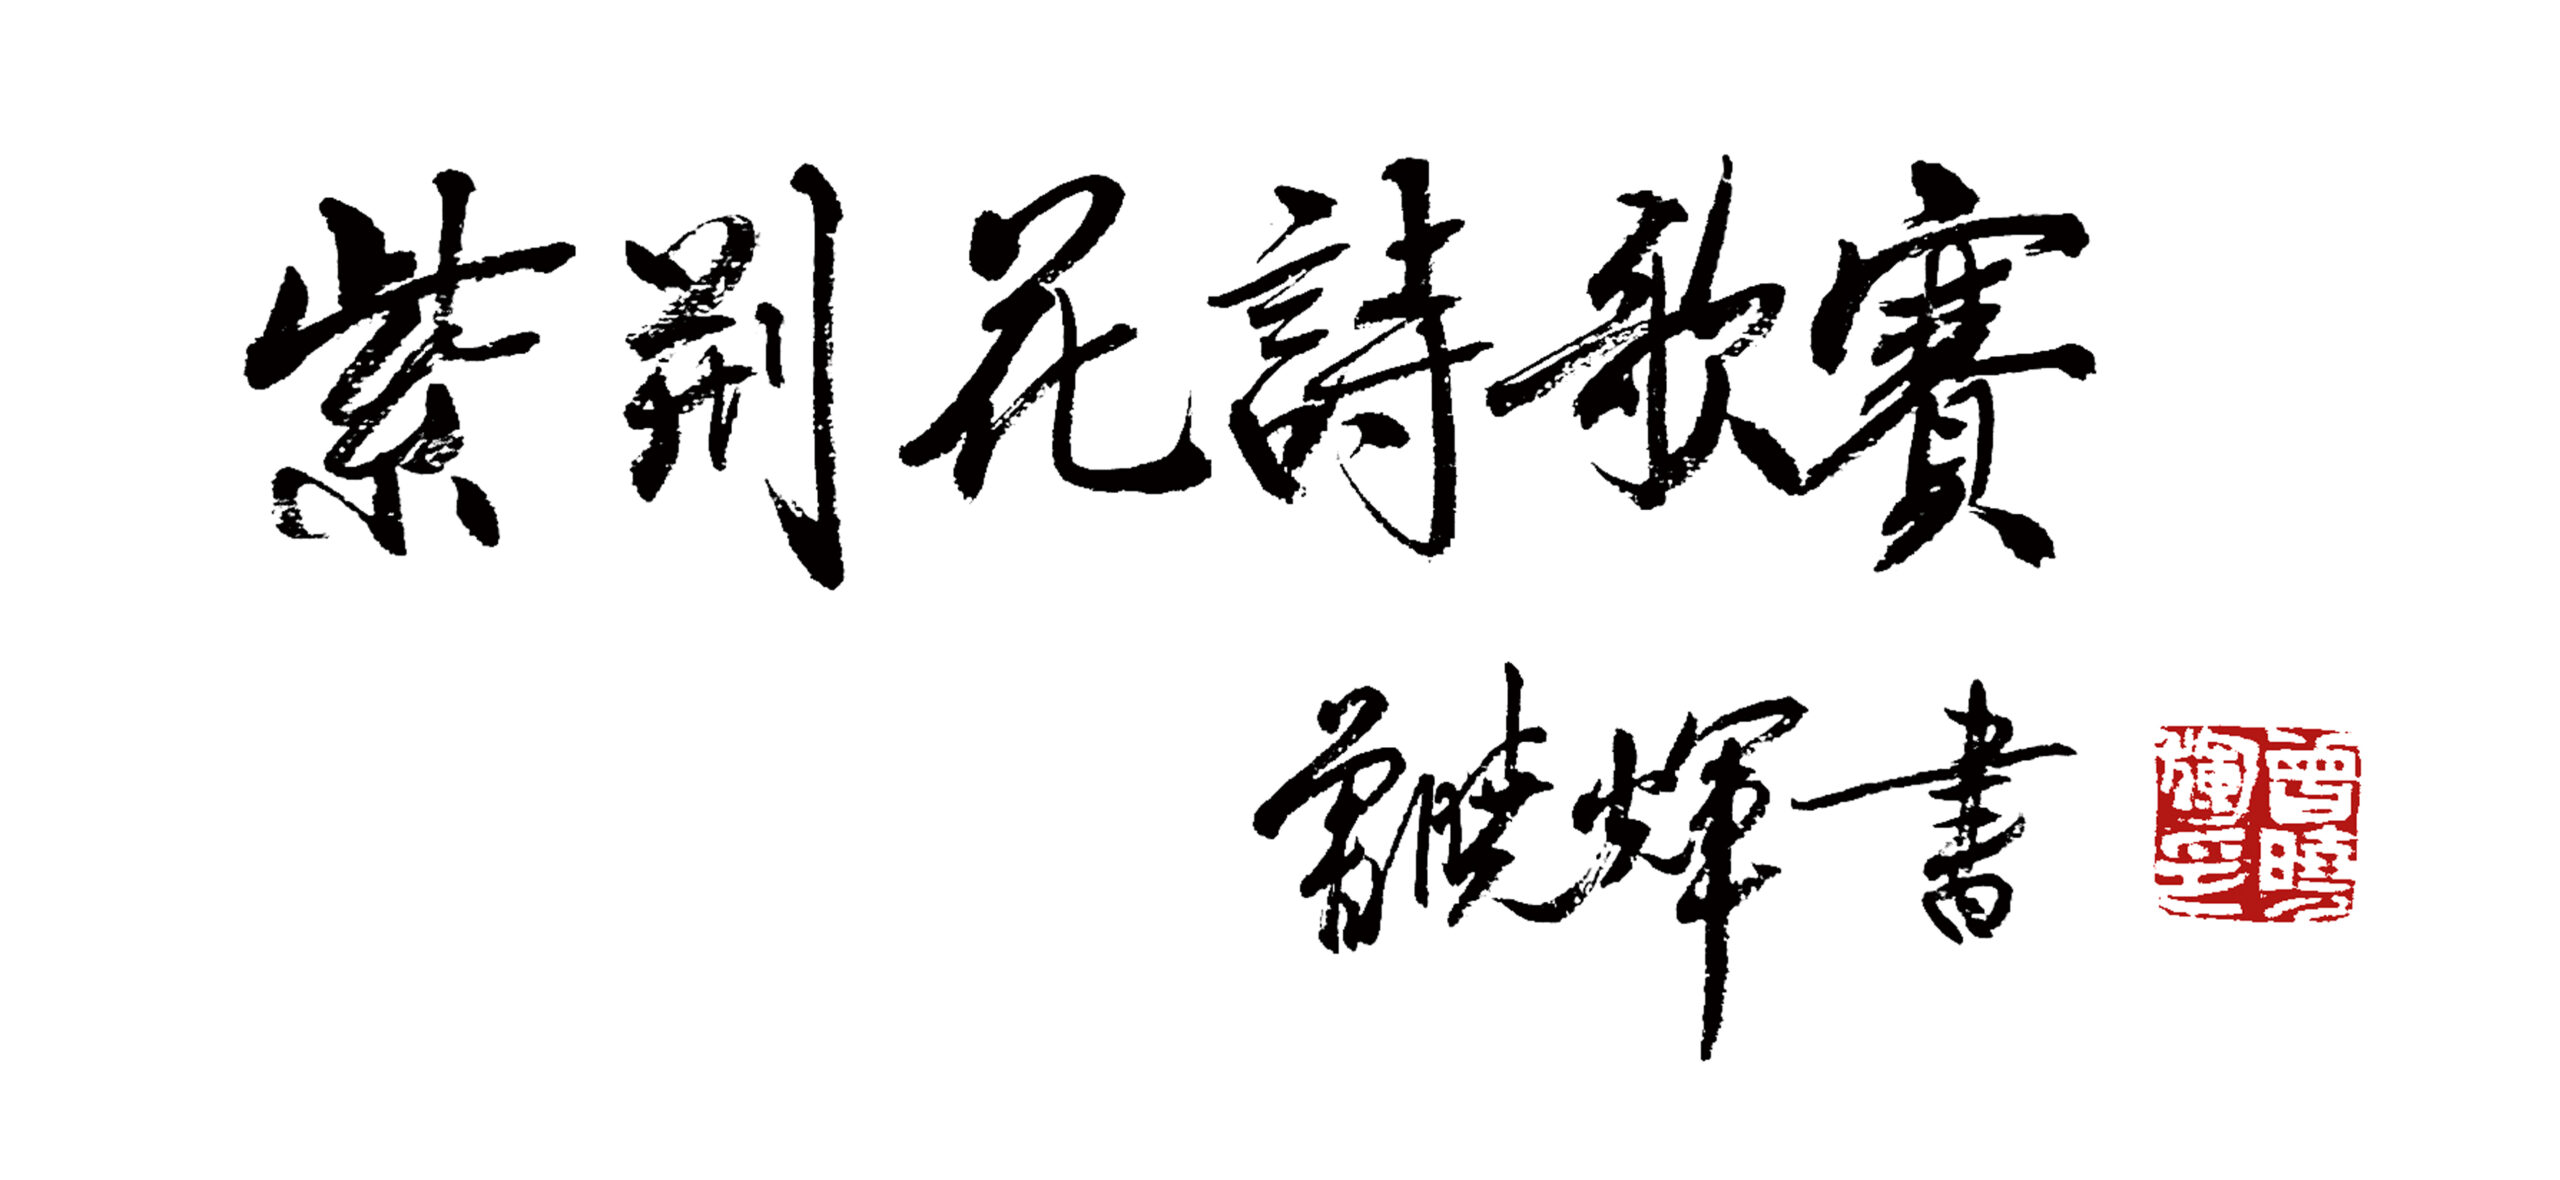 紫荆花詩歌賽
曾曉輝書
曾曉輝印